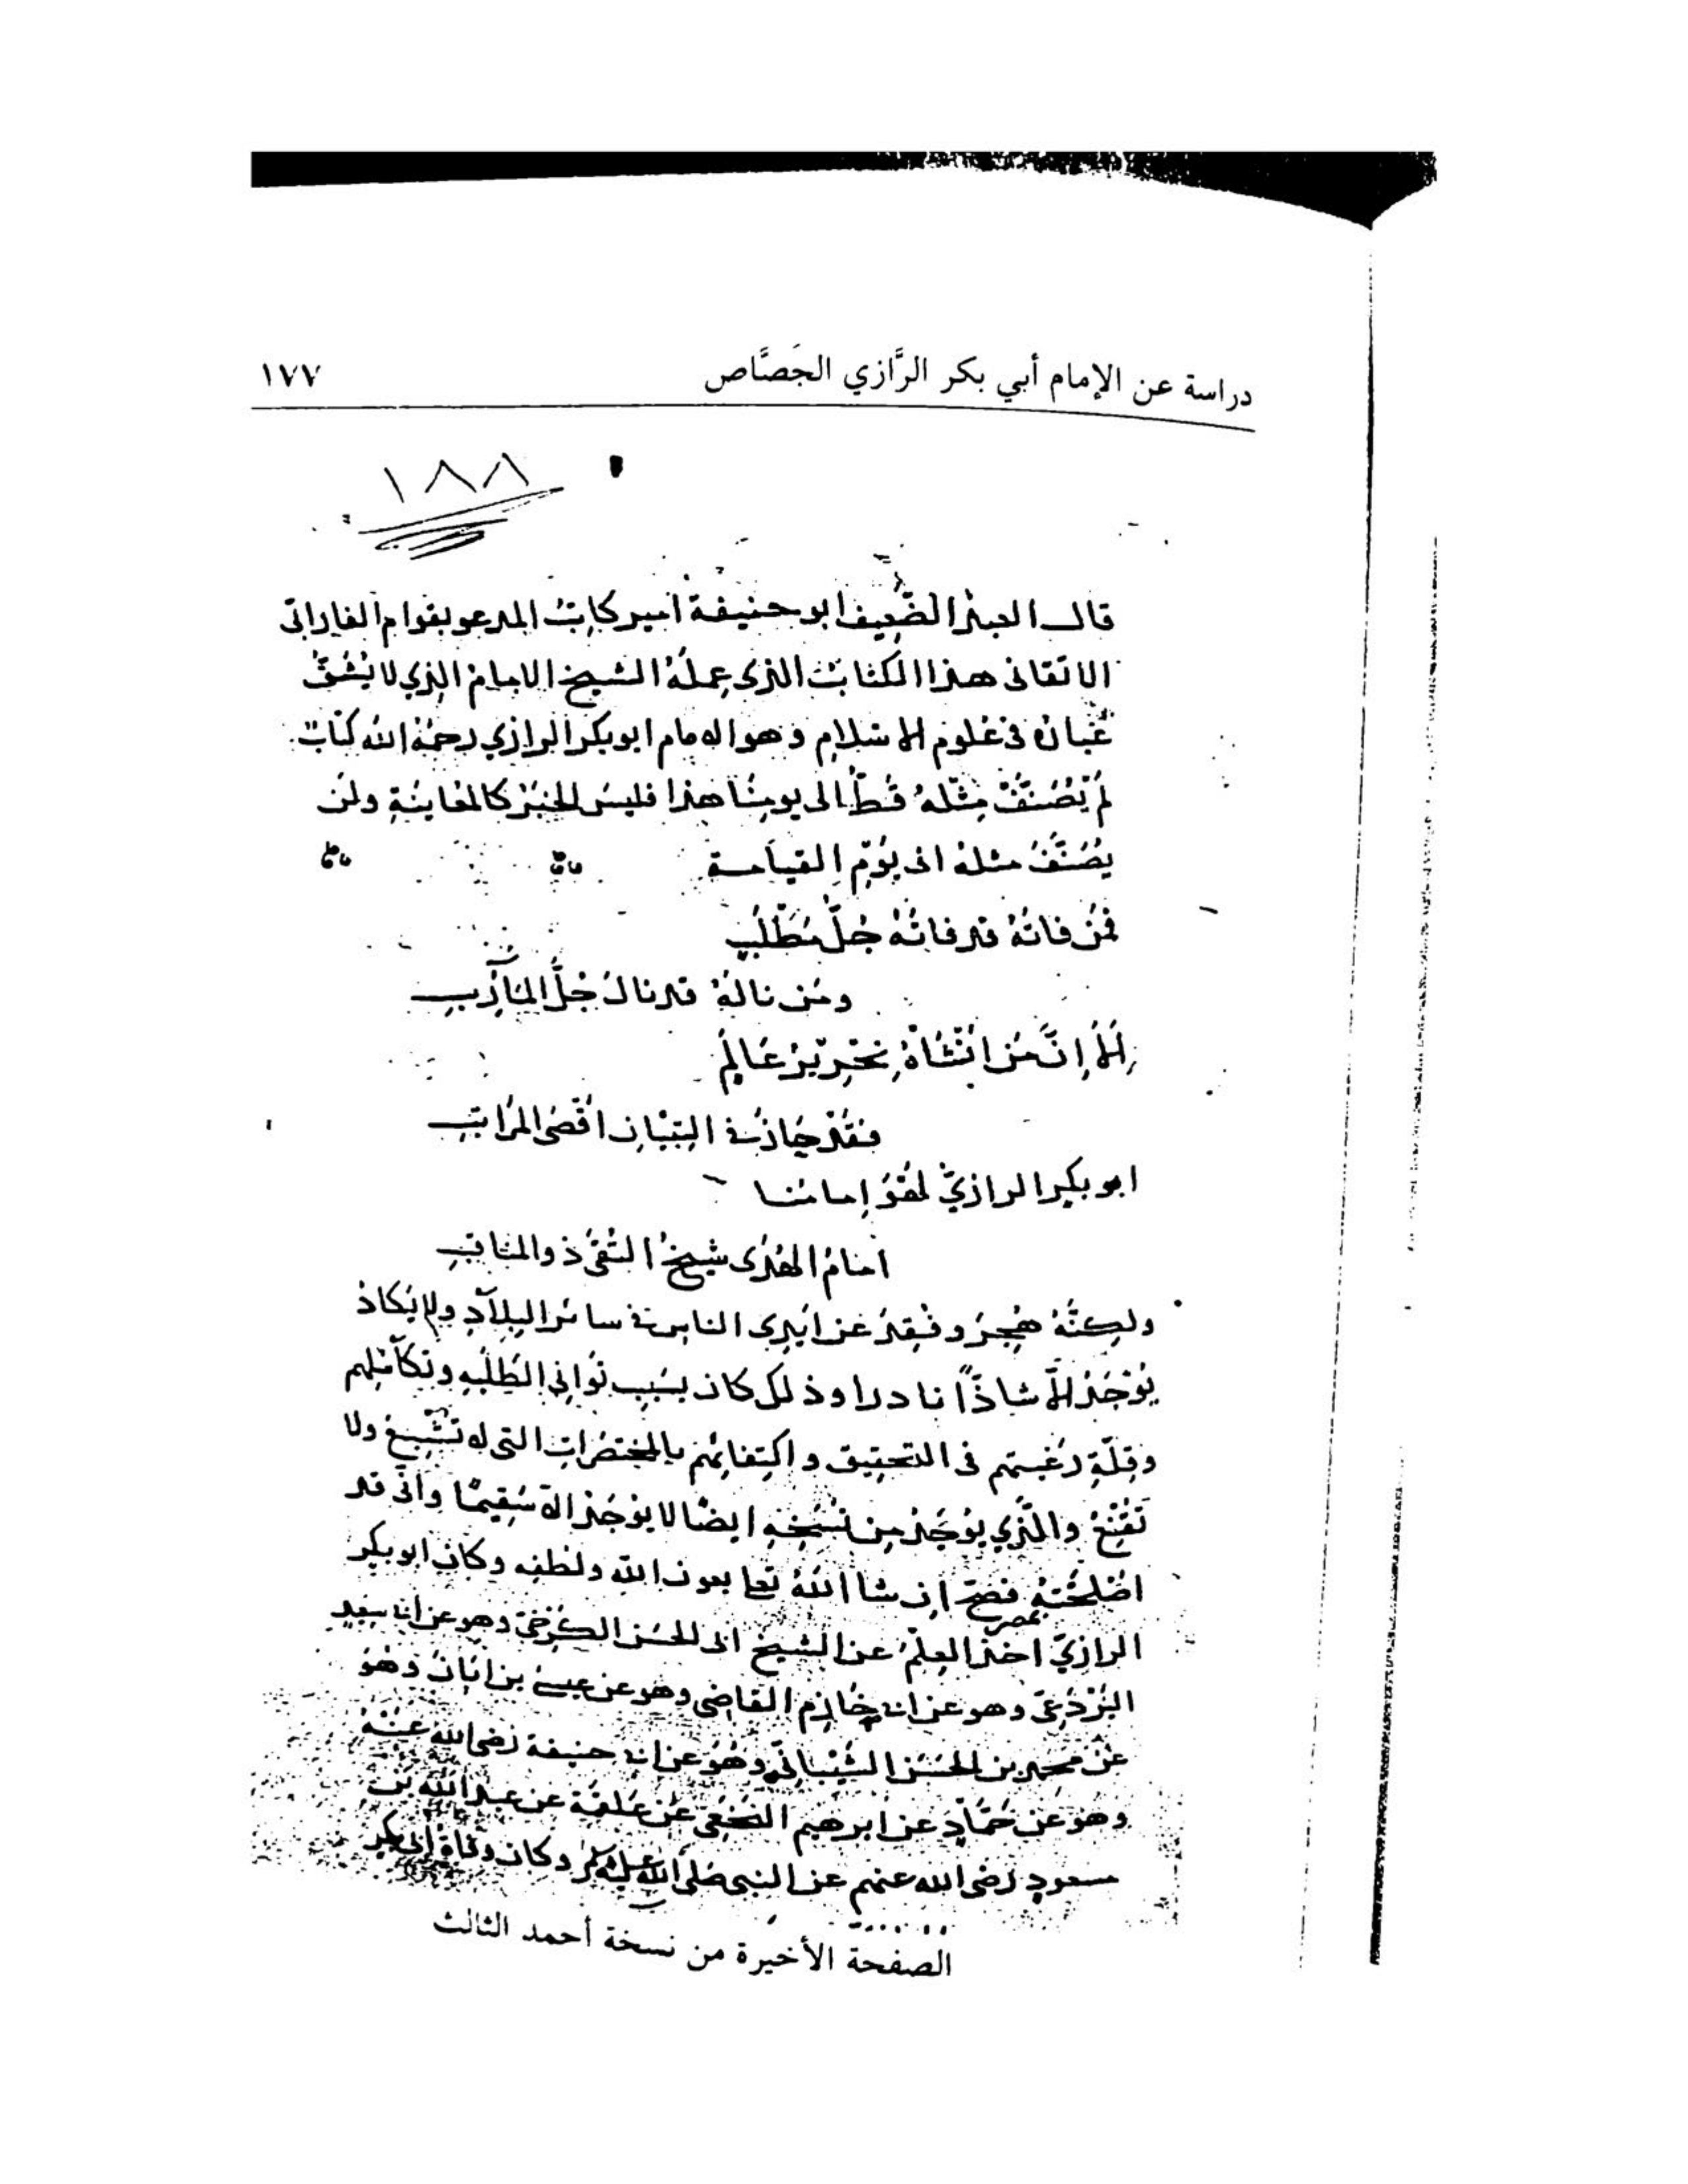 دراسة عن الإمام أبي بكر الرَّازي الجَصَّاص ١٧٧
١٨٨
قال العبد الضَّعِيف ابو حنيفة امير كاتب المدعو بقوام الفارابى
الاتقانى هذا الكتاب الذى عمله الشيخ الامام الذي لا يُشَقُّ
غباره فى علوم الاسلام وهو الامام ابو بكر الرازي رحمه الله كتاب
لم يُصَنَّف مثله قطُّ الى يومنا هذا فليس الخبر كالمعاينة ولن
يُصَنَّف مثله الى يوم القيامة
فمن فاته قد فاته جُلُّ مَطْلَب
ومن ناله قد نال جُلَّ المآرب
ألا إنَّ من انشاه نحرير عالم
فقد حاز فى التبيان اقصى المراتب
ابو بكر الرازي لهو إمامنا
امام الهدى شيخ التقى ذو المناقب
ولكنَّه هُجِرَ وفُقِدَ عن ايدى الناس فى سائر البلاد ولا يكاد
يوجد إلا شاذًّا نادرا وذلك كان بسبب توانى الطلبه وتكاسلهم
وقلَّةِ رغبتهم فى التحقيق واكتفائهم بالمختصرات التى لا تشبع ولا
تقنع والذي يوجد من نسخه ايضا لا يوجد الا سقيما وانى قد
اصلحته بمصر فصح ان شا الله تعا بعون الله ولطفه وكان ابو بكر
الرازي اخذ العلم عن الشيخ ابى الحسن الكرخى وهو عن ابى سعيد
البردعى وهو عن ابى خازم القاضى وهو عن عيسى بن ابان وهو
عن محمد بن الحسن الشيبانى وهو عن ابى حنيفة رضى الله عنه
وهو عن حمَّاد عن ابرهيم النخعى عن علقمة عن عبد الله بن
مسعود رضى الله عنهم عن النبى صلى الله عليه وكان وفاة ابى بكر
الصفحة الأخيرة من نسخة أحمد الثالث